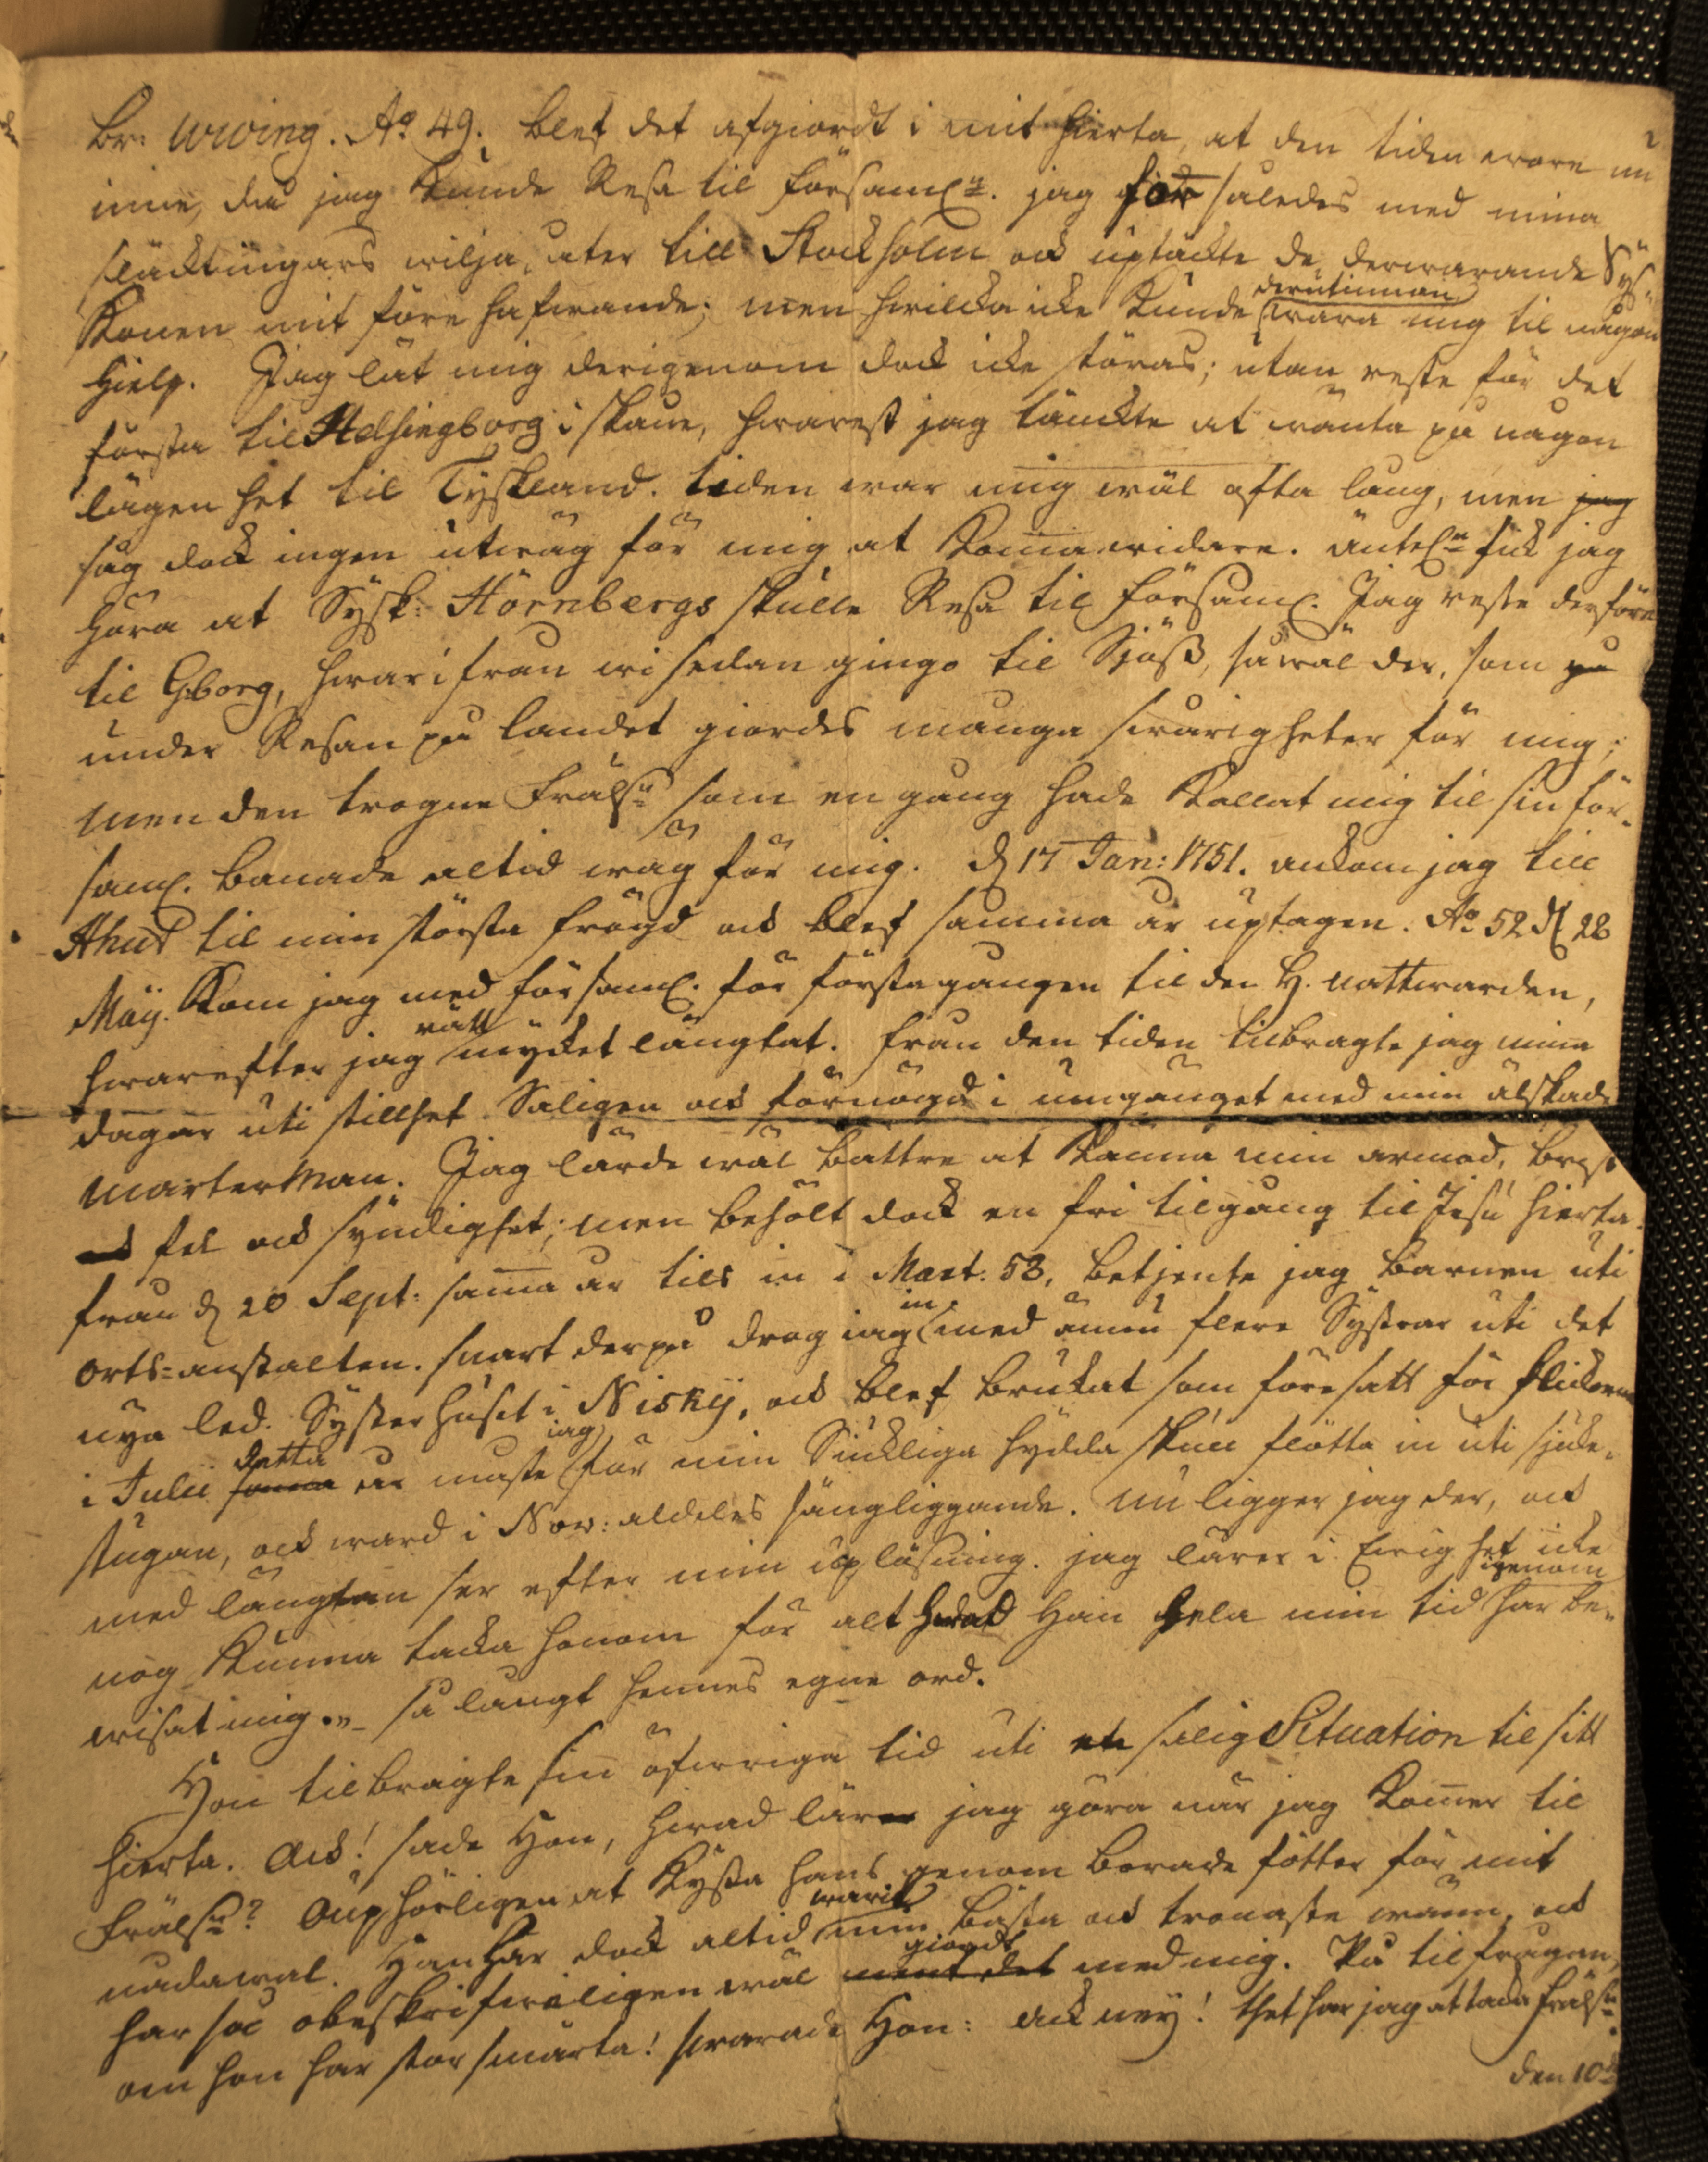 Br: Wiving. A:o 49. blef det afgiordt i mit hierta, at den tiden wore nu
inne, då jag kunde Resa til församl:n. jag for således med mina
släcktingars wilja, åter till Stockholm ock uptäckte de derwarande Sys-
konen mit före hafwande; men hwilcka icke kunde derutinnan wara mig til någon
hielp. Jag lät mig derigenom dock icke störas; utan reste för det
första til Helsingborg i skåne, hwarest jag tänckte at wänta på någon
lägen het til Tyskland. tiden war mig wäl ofta lång, men jag
såg dock ingen utwäg för mig at komma widare. äntel:n fick jag
höra at Sysk: Hörnbergs skulle Resa til församl. Jag reste derföre
til Gborg, hwarifrån wi sedan gingo til Sjöß, såwäl der, som på
under Resan på landet giordes många swårigheter för mig;
men den trogne Frälsn som en gång hade kallat mig til sin för-
saml. banade altid wäg för mig. d 17 Jan: 1751. ankom jag till
Hhut til min största frögd ock blef samma år uptagen. A:o 52 d 28
Maij. kom jag med församl. för första gången til den H. nattwarden,
hwarefter jag rätt mycket längtat. från den tiden tilbragte jag mina
dagar uti stillhet Saligen ock förnögd i umgånget med min älskade
marterman. Jag lärde wäl bättre at känna min armod, brist
ock fel ock syndighet; men behölt dock en fri tilgång til Jesu hierta.
från d 20 Sept: samma år tils in i Mart. 53, betjente jag barnen uti
orts-anstalten. snart derpå drog iag in med ännu flere Systrar uti det
nya led. Systerhuset i Nisky, ock blef brukat somföresatt för flickorna
i Julii samma detta år måste iag för min Siuckliga hydda skull flötta in uti sjuke-
stugan, ock ward i Nov: aldeles sängliggande. Nu ligger jag der, ock
med längtan ser efter min uplösning. jag lärer i Ewighet icke
nog kunna tacka honom för alt hwad Han hela min tid igenom har be-
wisat mig. så långt hennes egne ord.
Hon tilbragte sin öfwriga tid uti en salig Situation til sitt
hierta. Ack! sade Hon, hwad lärer jag göra når jag kommer til
Frälsn? Ouphörligen at kyssa hans genom borade fötter för mit
nådawal. Han har dock altid warit min bästa ock tronaste wänn, ock
har så obeskrifweligen wäl ment det giordt med mig. På tilfrågan,
om hon har stor smärta! swarade Hon: ack ney! thet har jag at tacka Frälsn.
den 10de